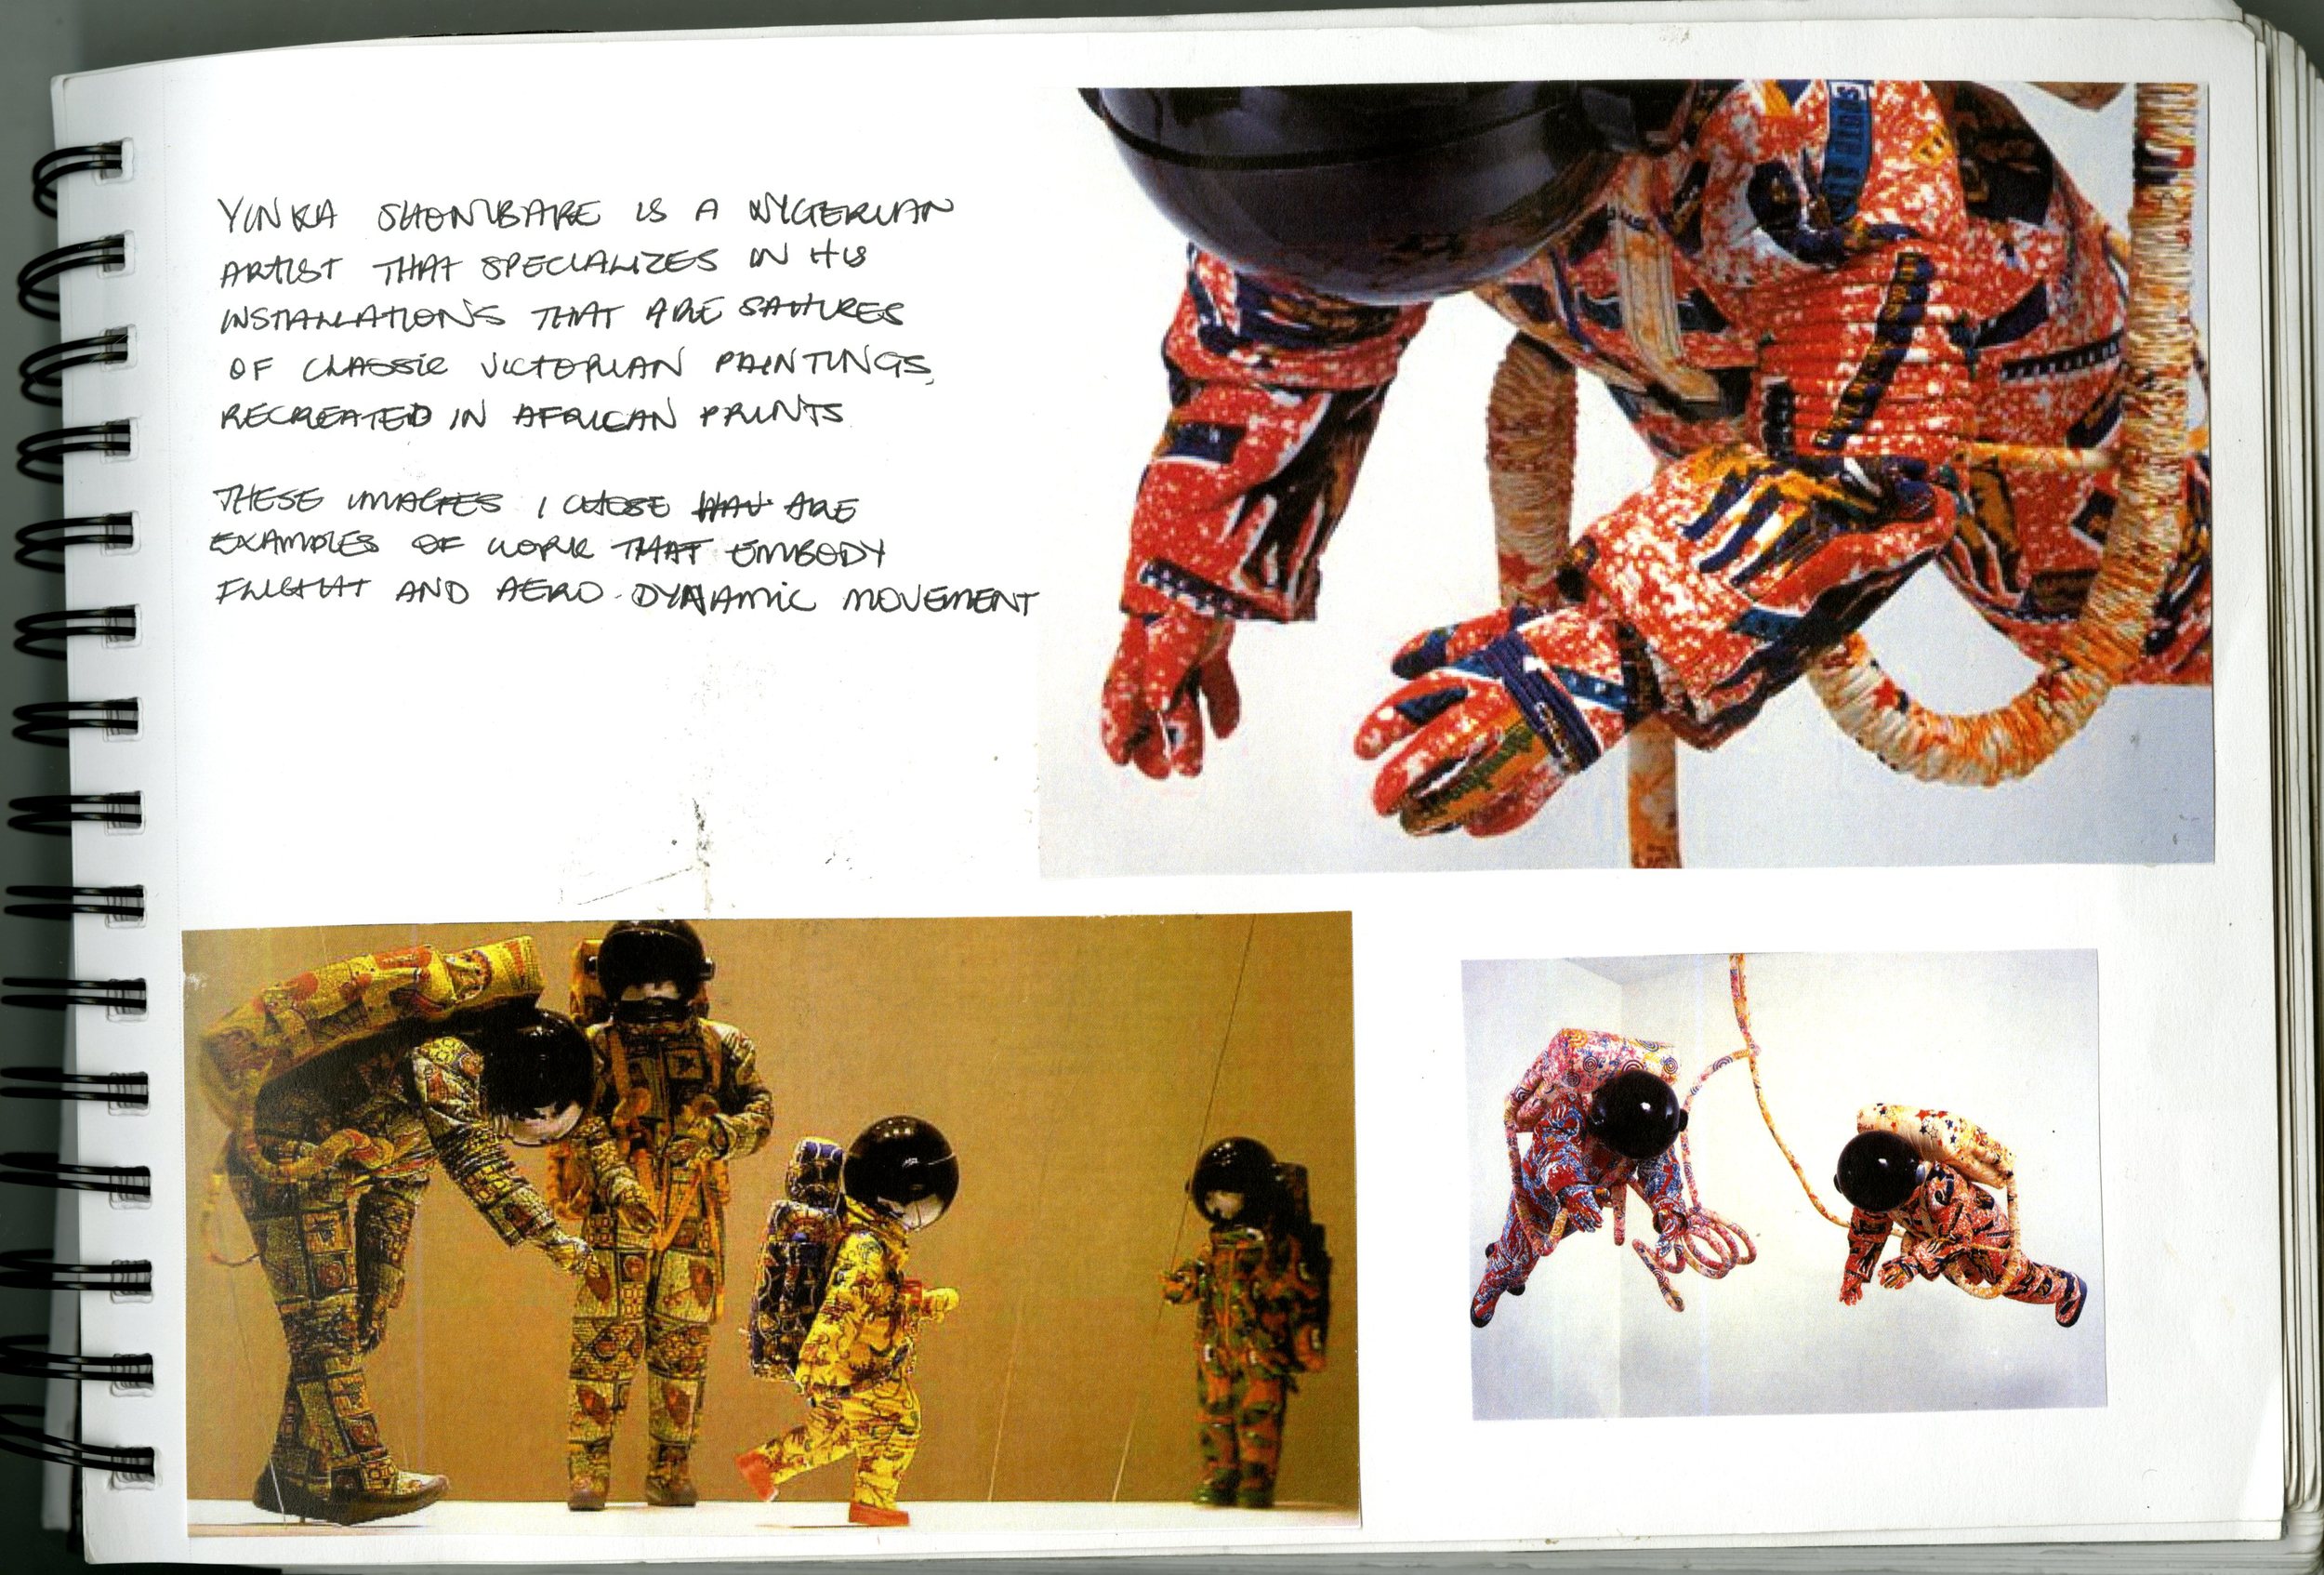 YINKA SHONIBARE IS A NYGERIAN
ARTIST THAT SPECIALIZES IN HIS
INSTALLATIONS THAT ARE SATIRES
OF CLASSIC VICTORIAN PAINTINGS,
RECREATED IN AFRICAN PRINTS
THESE IMAGES I CHOSE HAV ARE
EXAMPLES OF WORK THAT EMBODY
FLIGHT AND AERO-DYNAMIC MOVEMENT